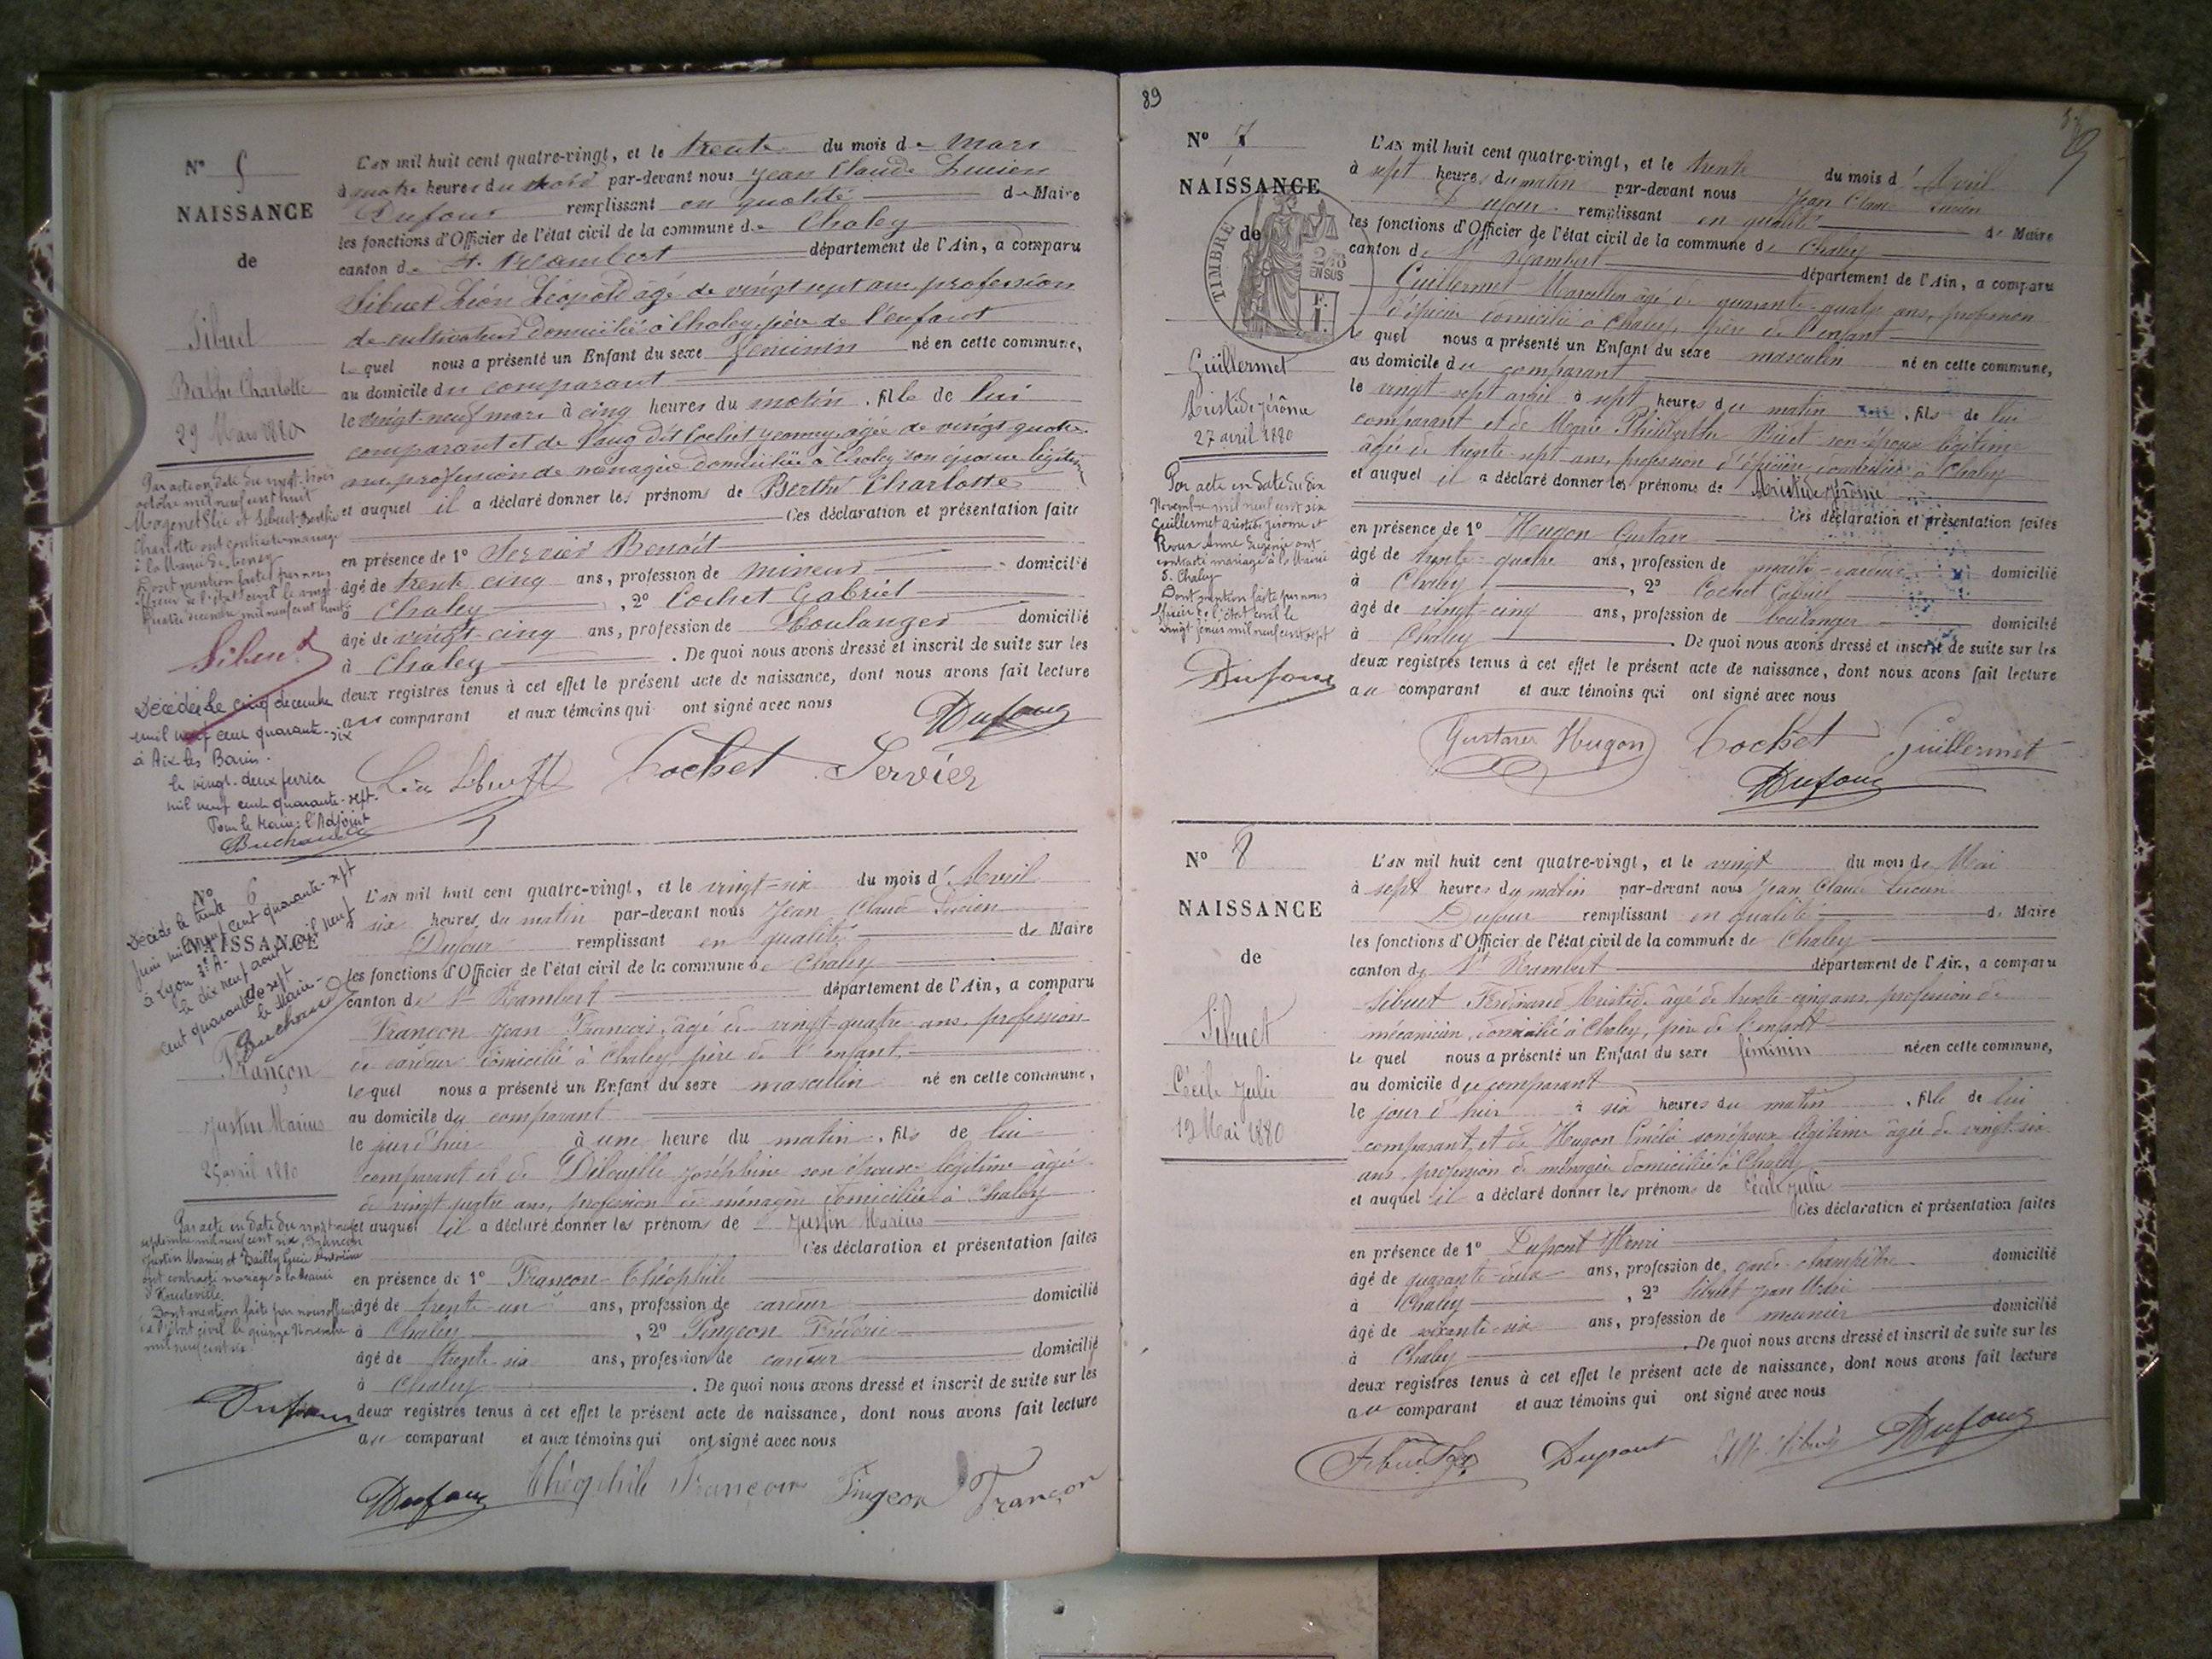 N° 5
NAISSANCE
de
Sibuet
Berthe Charlotte
29 Mars 1880
Par acte en date du vingt-trois
octobre mil neuf cent huit
et Sibuet Berthe
Charlotte ont contracté mariage
à la Mairie de
Dont mention faite par nous
officier de l'état civil le vingt
quatre décembre mil neuf cent huit
Sibuet
Décédée le cinq décembre
mil neuf cent quarante-six
à Aix les Bains.
le vingt-deux février
mil neuf cent quarante-sept.
Pour le Maire: l'Adjoint
L'AN mil huit cent quatre-vingt, et le trente du mois de Mars
à quatre heures du soir par-devant nous Jean Claude Lucien
Dufour remplissant en qualité de Maire
les fonctions d'Officier de l'état civil de la commune de Chaley
canton de St. Rambert département de l'Ain, a comparu
Sibuet Léon Léopold âgé de vingt sept ans, profession
de cultivateur domicilié à Chaley, père de l'enfant
lequel nous a présenté un Enfant du sexe féminin né en cette commune,
au domicile du comparant
le vingt-neuf mars à cinq heures du matin, fille de lui
comparant et de dit Cochet âgée de vingt-quatre
ans profession de ménagère domiciliée à Chaley son épouse légitime
et auquel il a déclaré donner les prénoms de Berthe Charlotte
Ces déclaration et présentation faite
en présence de 1° Servier Benoît
âgé de trente cinq ans, profession de mineur domicilié
à Chaley, 2° Cochet Gabriel
âgé de vingt-cinq ans, profession de Boulanger domicilié
à Chaley. De quoi nous avons dressé et inscrit de suite sur les
deux registres tenus à cet effet le présent acte de naissance, dont nous avons fait lecture
au comparant et aux témoins qui ont signé avec nous
Dufour
Cochet Servier
N° 6
Décédé le trente
juin mil neuf cent quarante-sept
à Lyon 3e A-
le dix neuf août mil neuf
cent quarante sept
le Maire-
NAISSANCE
de
Françon
Justin Marius
25 avril 1880
Par acte en date du vingt neuf
septembre mil neuf cent six, Françon
Justin Marius et Bailly
ont contracté mariage à la Mairie
d'Hauteville.
Dont mention faite par nous officier
de l'état civil le quinze Novembre
mil neuf cent six.
Dufour
L'AN mil huit cent quatre-vingt, et le vingt-six du mois d'Avril
à six heures du matin par-devant nous Jean Claude Lucien
Dufour remplissant en qualité de Maire
les fonctions d'Officier de l'état civil de la commune de Chaley
canton de St Rambert département de l'Ain, a comparu
Françon Jean François, âgé de vingt-quatre ans, profession
de cardeur domicilié à Chaley père de l'enfant
lequel nous a présenté un Enfant du sexe masculin né en cette commune,
au domicile du comparant
le jour d'hier à une heure du matin, fils de lui
comparant et de Joséphine son épouse légitime âgée
de vingt quatre ans, profession de ménagère domiciliée à Chaley
et auquel il a déclaré donner les prénoms de Justin Marius
Ces déclaration et présentation faites
en présence de 1° Françon Théophile
âgé de trente-un ans, profession de cardeur domicilié
à Chaley, 2° Pingeon Frédéric
âgé de trente-six ans, profession de cardeur domicilié
à Chaley. De quoi nous avons dressé et inscrit de suite sur les
deux registres tenus à cet effet le présent acte de naissance, dont nous avons fait lecture
au comparant et aux témoins qui ont signé avec nous
Dufour Théophile Françon Pingeon Françon
89
N° 7
NAISSANCE
de
TIMBRE
2/10
EN SUS
Guillermet
Aristide Jérôme
27 avril 1880
Par acte en date du dix
Novembre mil neuf cent six
Guillermet Aristide Jérôme et
Roux Anne Eugénie ont
contracté mariage à la Mairie
d. Chaley
Dont mention faite par nous
officier de l'état civil le
vingt Janvier mil neuf cent sept
Dufour
L'AN mil huit cent quatre-vingt, et le trente du mois d'Avril
à sept heures du matin par-devant nous Jean Claude Lucien
Dufour remplissant en qualité de Maire
les fonctions d'Officier de l'état civil de la commune de Chaley
canton de St Rambert département de l'Ain, a comparu
Guillermet Marcellin âgé de quarante-quatre ans, profession
d'épicier domicilié à Chaley, père de l'enfant
lequel nous a présenté un Enfant du sexe masculin né en cette commune,
au domicile du comparant
le vingt-sept avril à sept heures du matin, fils de lui
comparant et de Marie Philiberthe son épouse légitime
âgée de trente-sept ans, profession d'épicière domiciliée à Chaley
et auquel il a déclaré donner les prénoms de Aristide Jérôme
Ces déclaration et présentation faites
en présence de 1° Hugon Gustave
âgé de trente-quatre ans, profession de domicilié
à Chaley, 2° Cochet Gabriel
âgé de vingt-cinq ans, profession de boulanger domicilié
à Chaley. De quoi nous avons dressé et inscrit de suite sur les
deux registres tenus à cet effet le présent acte de naissance, dont nous avons fait lecture
au comparant et aux témoins qui ont signé avec nous
Gustave Hugon Cochet Guillermet
Dufour
N° 8
NAISSANCE
de
Sibuet
Cécile Julie
19 Mai 1880
L'AN mil huit cent quatre-vingt, et le vingt du mois de Mai
à sept heures du matin par-devant nous Jean Claude Lucien
Dufour remplissant en qualité de Maire
les fonctions d'Officier de l'état civil de la commune de Chaley
canton de St Rambert département de l'Ain, a comparu
Sibuet Ferdinand Aristide âgé de trente-cinq ans, profession de
mécanicien, domicilié à Chaley, père de l'enfant
lequel nous a présenté un Enfant du sexe féminin né en cette commune,
au domicile du comparant
le jour d'hier à six heures du matin, fille de lui
comparant, et de Hugon son épouse légitime âgée de vingt-six
ans, profession de ménagère domiciliée à Chaley
et auquel il a déclaré donner les prénoms de Cécile Julie
Ces déclaration et présentation faites
en présence de 1° Dupont Henri
âgé de quarante-deux ans, profession de garde-champêtre domicilié
à Chaley, 2° Sibuet Jean
âgé de soixante-six ans, profession de meunier domicilié
à Chaley. De quoi nous avons dressé et inscrit de suite sur les
deux registres tenus à cet effet le présent acte de naissance, dont nous avons fait lecture
au comparant et aux témoins qui ont signé avec nous
Dupont Dufour